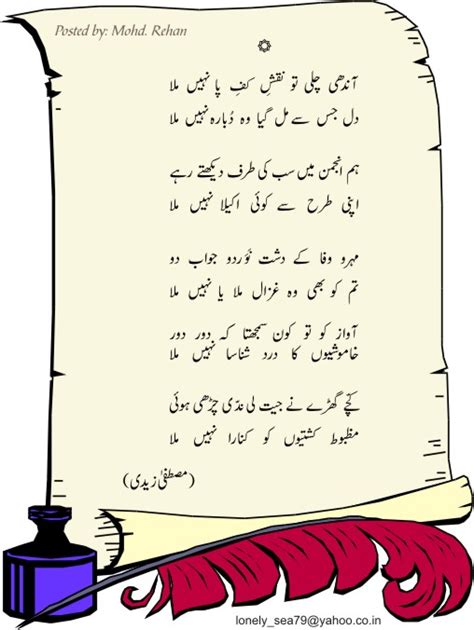 Posted by: Mohd. Rehan
آندھی چلی تو نقشِ کفِ پا نہیں ملا
دل جس سے مل گیا وہ دُبارہ نہیں ملا
ہم انجمن میں سب کی طرف دیکھتے رہے
اپنی طرح سے کوئی اکیلا نہیں ملا
مہرو وفا کے دشت نوَردو جواب دو
تم کو بھی وہ غزال ملا یا نہیں ملا
آواز کو تو کون سمجھتا کہ دور دور
خاموشیوں کا درد شناسا نہیں ملا
کچّے گھڑے نے جیت لی ندّی چڑھی ہوئی
مظبوط کشتیوں کو کنارا نہیں ملا
(مصطفیٰ زیدی)
lonely_sea79@yahoo.co.in